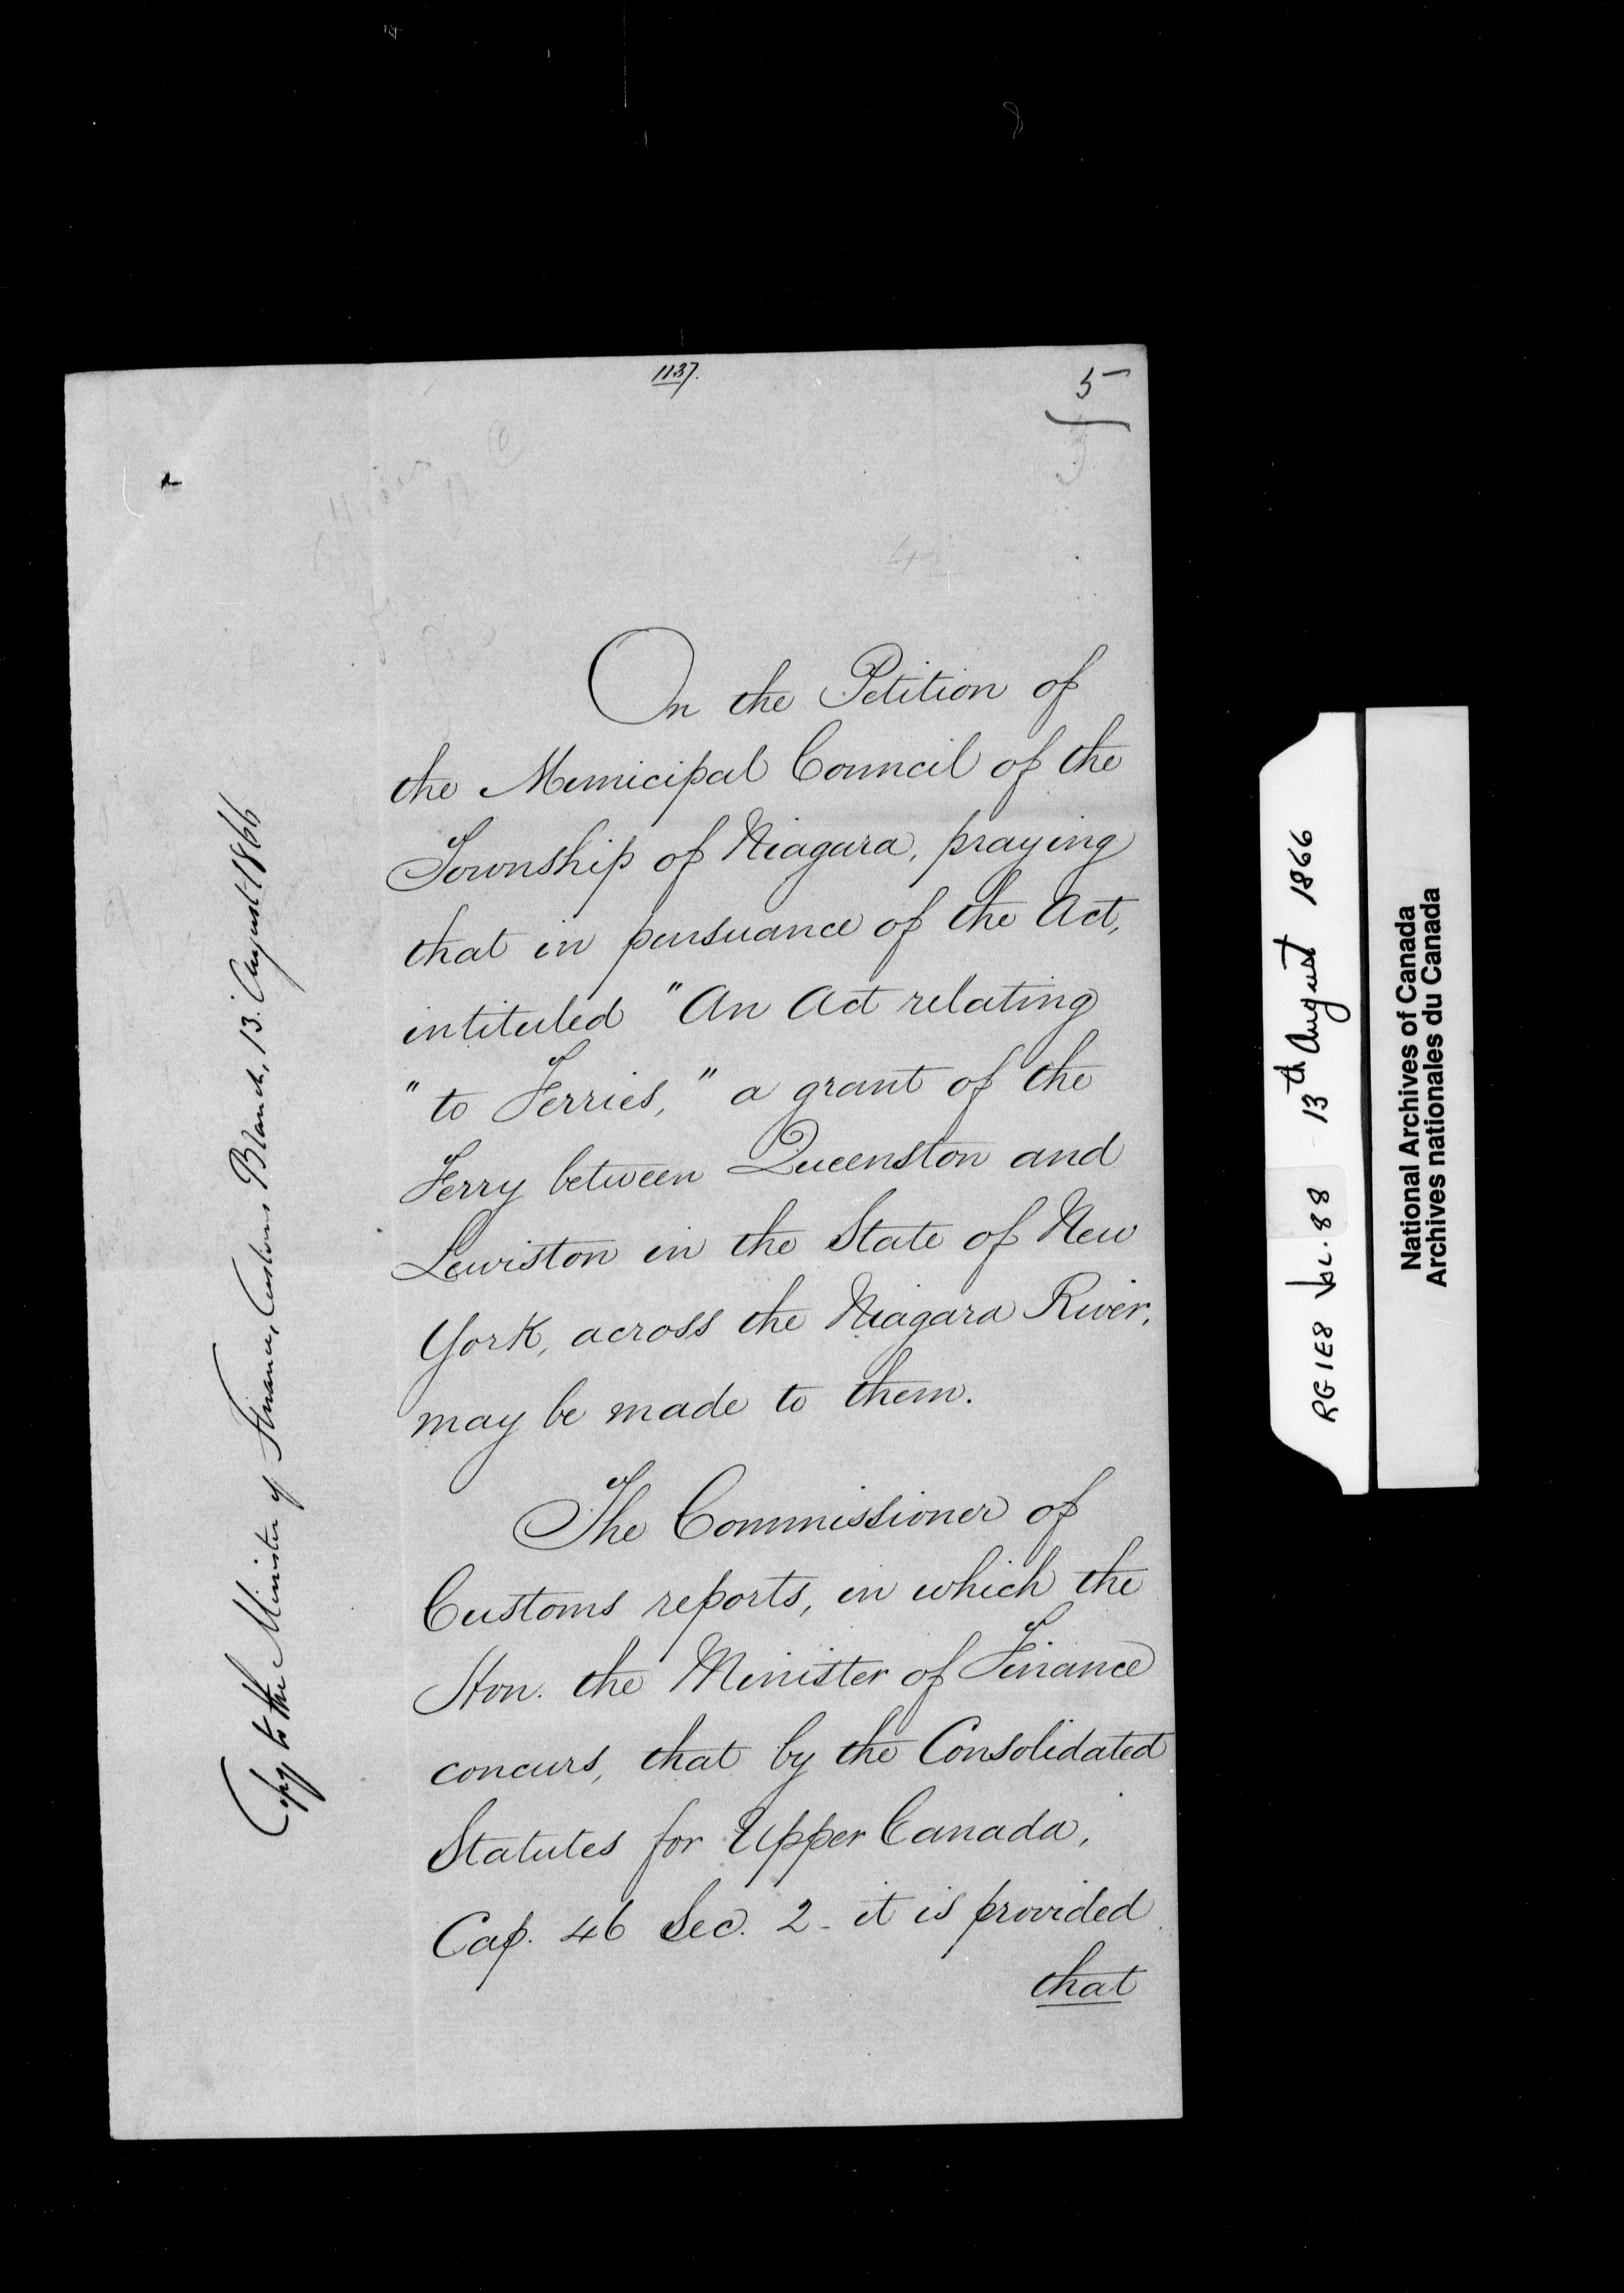 1137.
5
On the Petition of
the Municipal Council of the
Township of Niagara, praying
that in pursuance of the Act,
intituled "An Act relating
" to Ferries," a grant of the
Ferry between Queenston and
Lewiston in the State of New
York, across the Niagara River,
may be made to them.
The Commissioner of
Customs reports, in which the
Hon. the Minister of Finance
concurs, that by the Consolidated
Statutes for Upper Canada,
Cap. 46 Sec. 2 - it is provided
that
Copy to the Minister of Finance, Customs Branch, 13. August 1866
RG 1E8 Vol. 88 13th August 1866
National Archives of Canada
Archives nationales du Canada